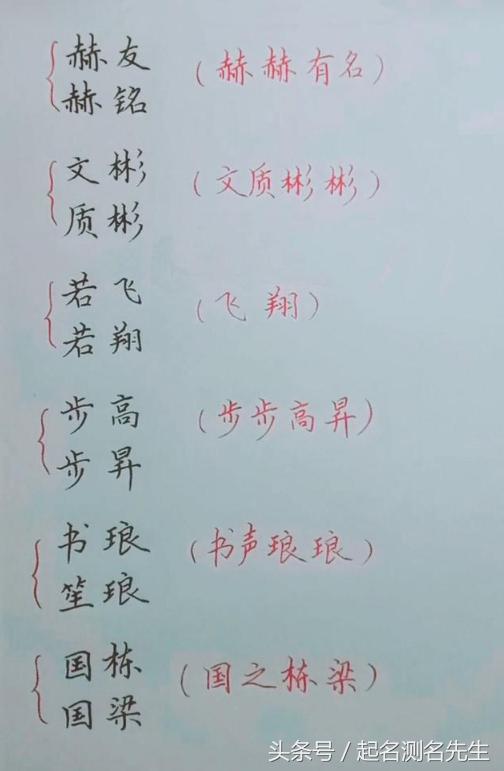 赫友
赫铭
(赫赫有名)
文彬
质彬
(文质彬彬)
若飞
若翔
(飞翔)
步高
步昇
(步步高昇)
书琅
笙琅
(书声琅琅)
国栋
国梁
(国之栋梁)
头条号/起名测名先生